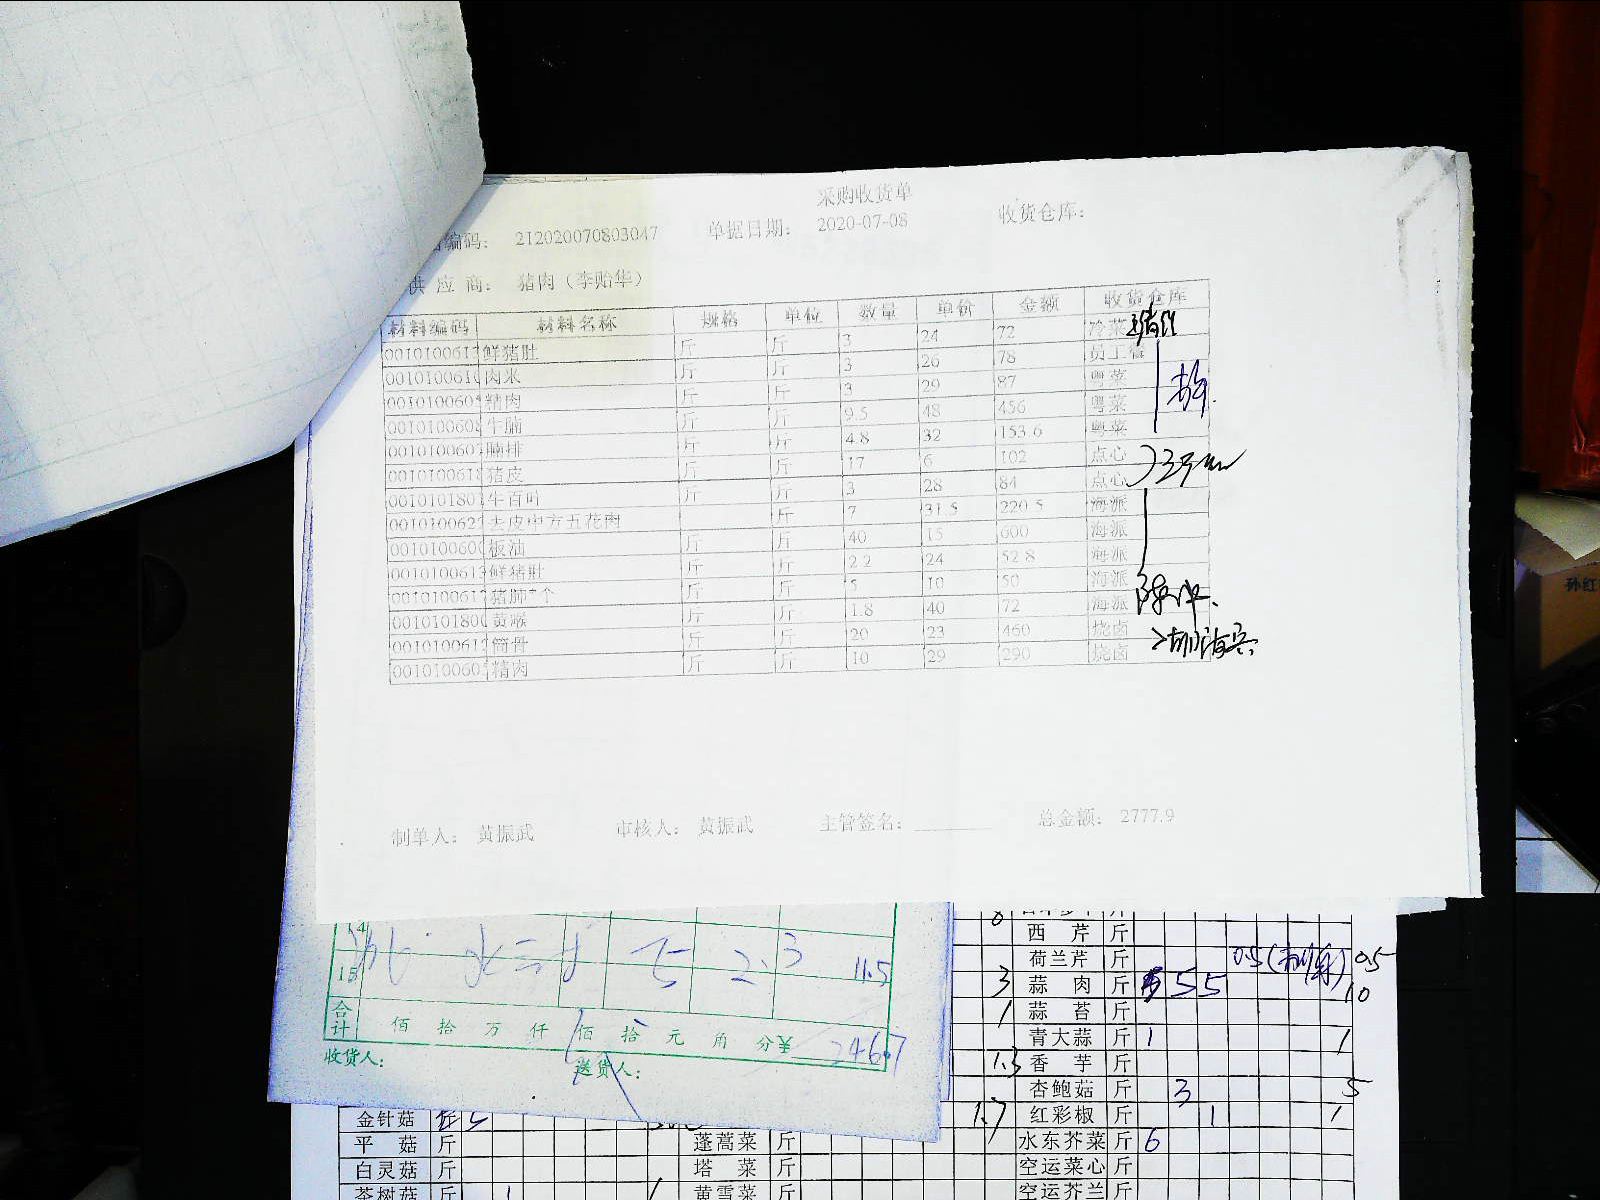 采购收货单
编码： 212020070803047 单据日期： 2020-07-08 收货仓库：
供 应 商： 猪肉（李贻华）
材料编码 材料名称 规格 单位 数量 单价 金额 收货仓库
001010061 鲜猪肚 斤 斤 3 24 72 冷菜
001010061 肉米 斤 斤 3 26 78 员工餐
001010060 精肉 斤 斤 3 29 87 粤菜
001010060 牛腩 斤 斤 9.5 48 456 粤菜
001010060 腩排 斤 斤 4.8 32 153.6 粤菜
001010061 猪皮 斤 斤 17 6 102 点心
001010180 牛百叶 斤 斤 3 28 84 点心
001010062 去皮中方五花肉 斤 7 31.5 220.5 海派
001010060 板油 斤 斤 40 15 600 海派
001010061 鲜猪肚 斤 斤 2.2 24 52.8 海派
001010061 猪肺*个 斤 斤 5 10 50 海派
001010180 黄喉 斤 斤 1.8 40 72 海派
001010061 筒骨 斤 斤 20 23 460 烧卤
001010060 精肉 斤 斤 10 29 290 烧卤
制单人： 黄振武 审核人： 黄振武 主管签名： 总金额： 2777.9
14
15 2.3 11.5
合计 佰 拾 万 仟 佰 拾 元 角 分 ¥ 246.7
收货人： 送货人：
8 斤
西 芹 斤
荷兰芹 斤 0.5 0.5
3 蒜 肉 斤 5 5 10
1 蒜 苔 斤
青大蒜 斤 1 1
1.3 香 芋 斤
杏鲍菇 斤 3 5
1.7 红彩椒 斤 1 1
水东芥菜 斤 6
空运菜心 斤
空运芥兰 斤
金针菇 斤 5
平 菇 斤 蓬蒿菜 斤
白灵菇 斤 塔 菜 斤
茶树菇 斤 1 1 黄雪菜 斤
孙红